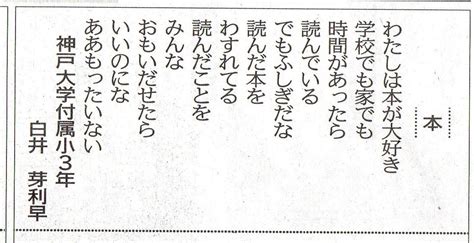 本
わたしは本が大好き
学校でも家でも
時間があったら
読んでいる
でもふしぎだな
読んだ本を
わすれてる
読んだことを
みんな
おもいだせたら
いいのにな
ああもったいない
神戸大学付属小３年
白井　芽利早